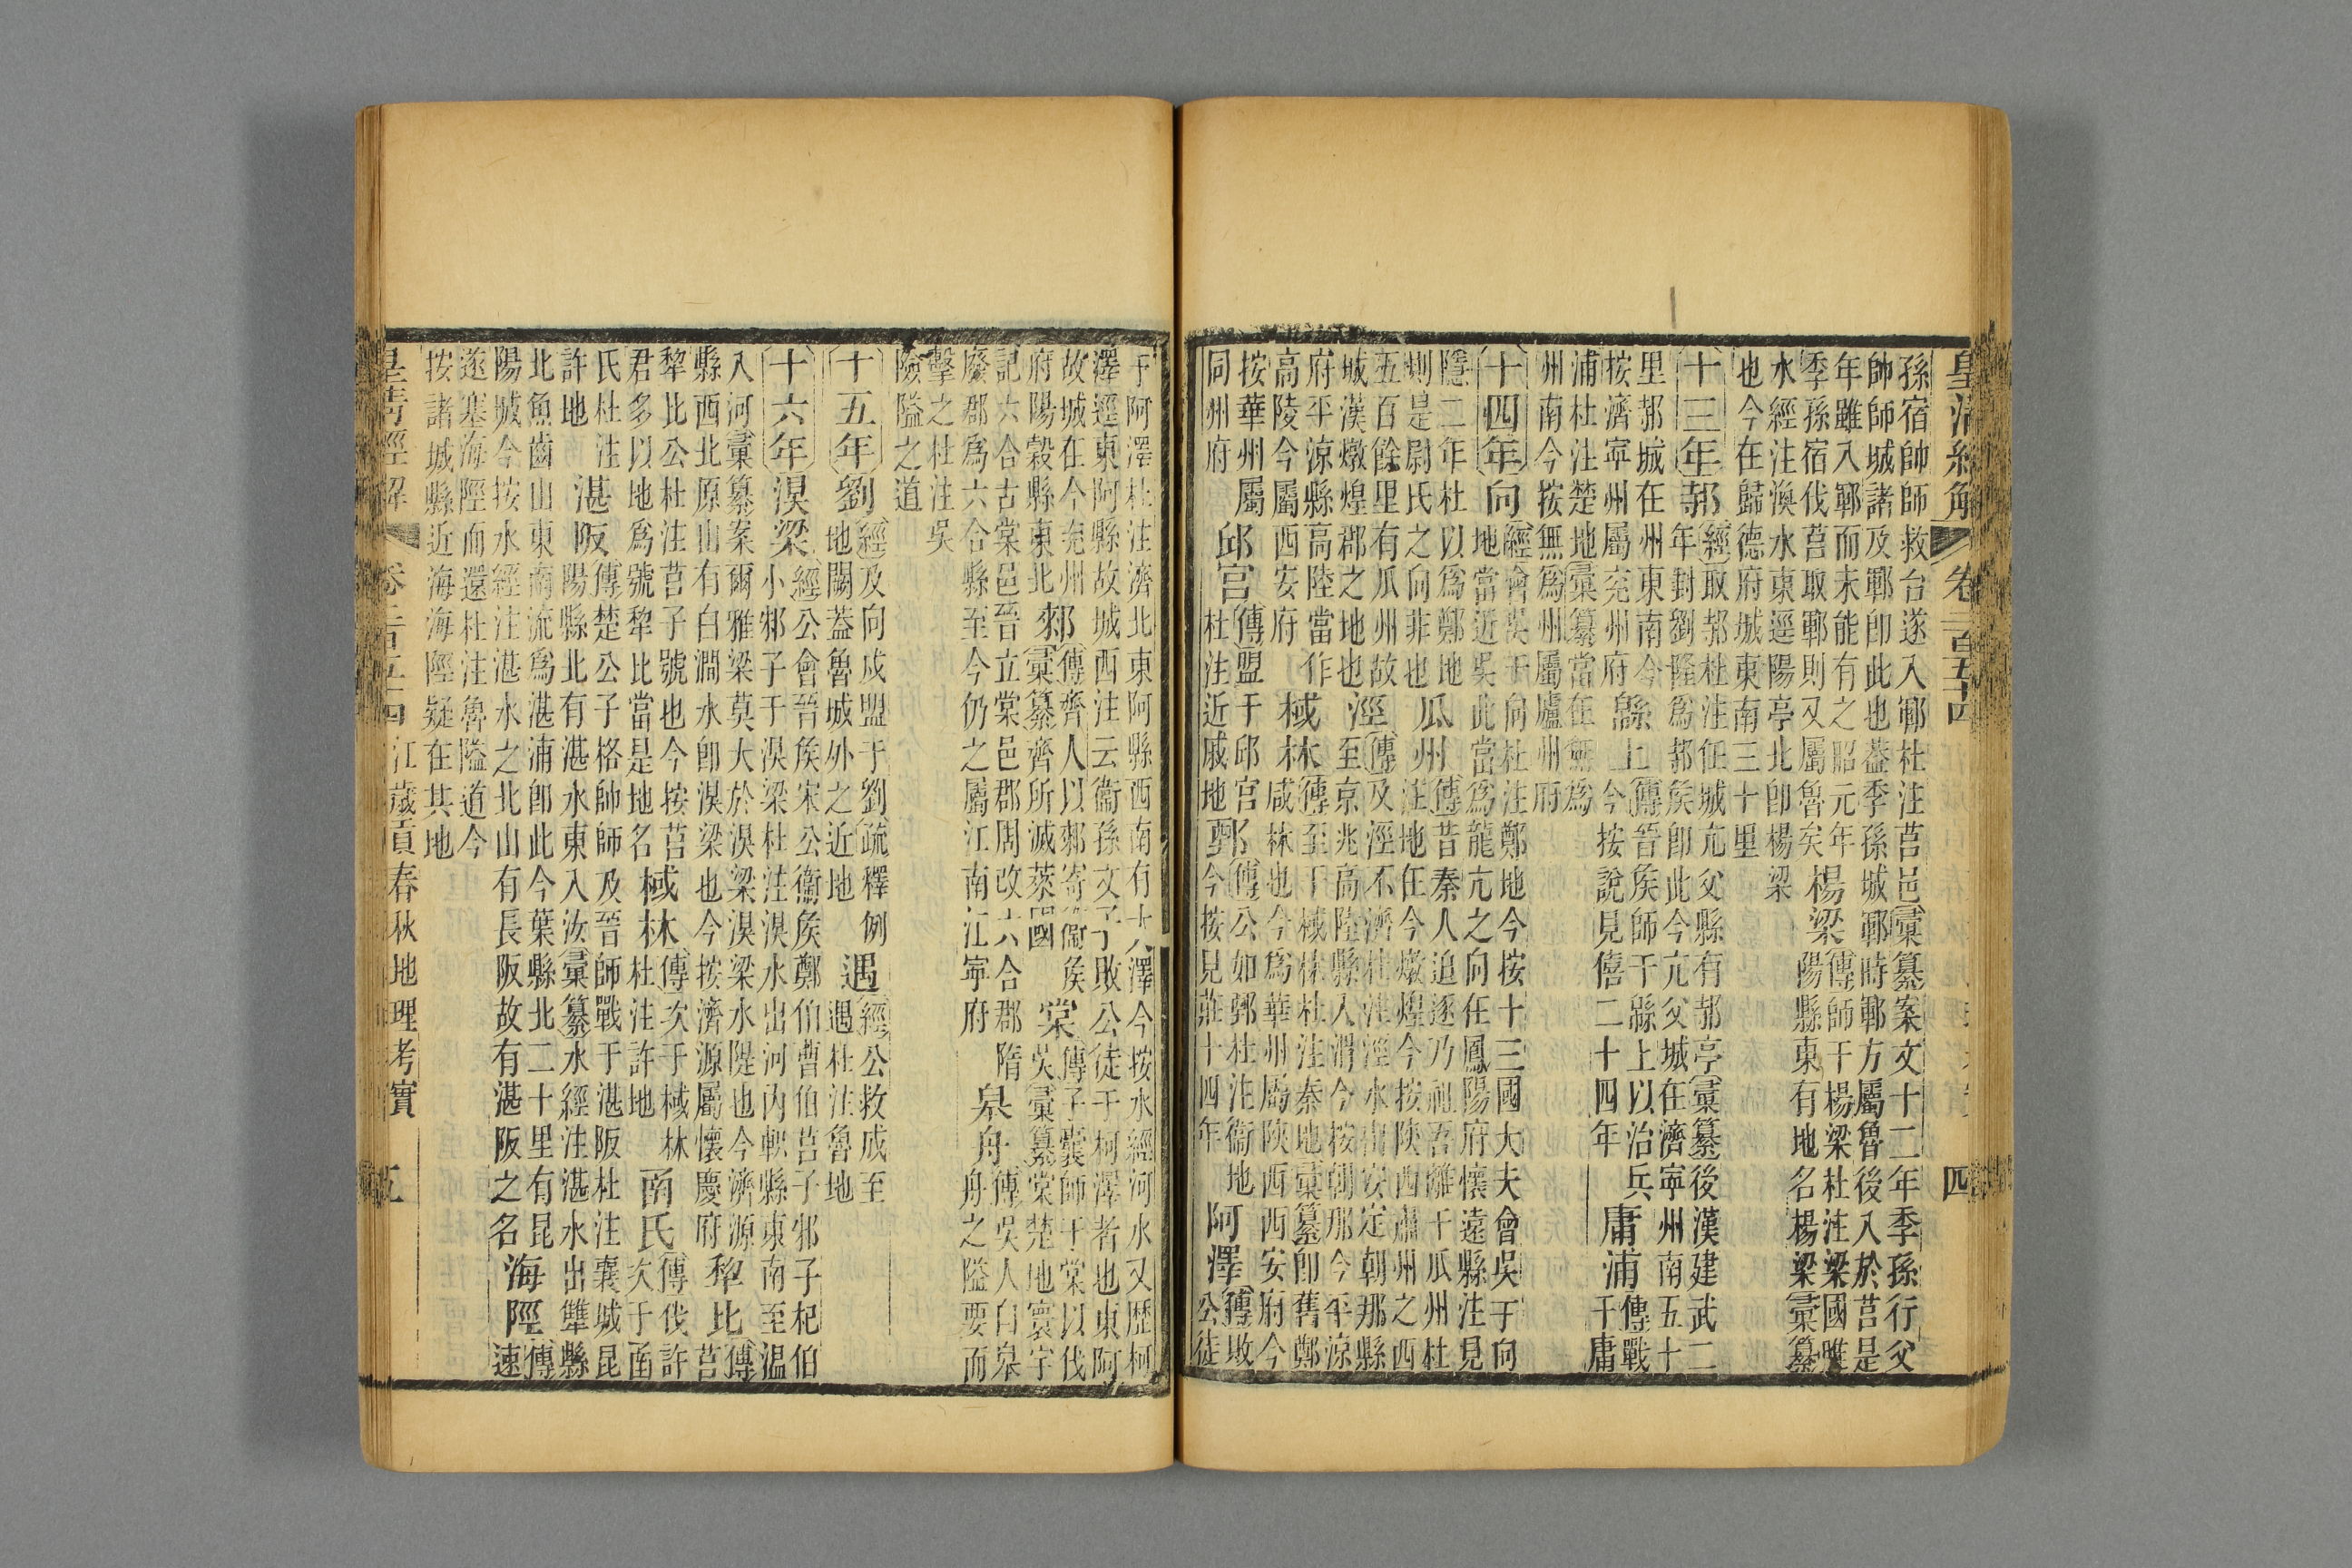 皇清經解 卷二百五十四 四
孫宿帥師救台遂入鄆杜注莒邑彙纂案文十二年季孫行父
帥師城諸及鄆卽此也葢季孫城鄆時鄆方屬魯後入於莒是
年雖入鄆而未能有之昭元年
季孫宿伐莒取鄆則又屬魯矣
楊梁
傳師于楊梁杜注梁國睢
陽縣東有地名楊梁彙纂
水經注渙水東逕陽亭北卽楊梁
也今在歸德府城東南三十里
十三年 邿
經取邿杜注任城亢父縣有邿亭彙纂後漢建武二
年封劉隆爲邿矦卽此今亢父城在濟寧州南五十
里邿城在州東南今
按濟寧州屬兖州府
緜上
傳晉矦師于緜上以治兵
今按說見僖二十四年
庸浦
傳戰
于庸
浦杜注楚地彙纂當在無爲
州南今按無爲州屬廬州府
十四年 向
經會吳于向杜注鄭地今按十三國大夫會吳于向
地當近吳此當爲龍亢之向在鳳陽府懷遠縣注見
隱二年杜以爲鄭地
則是尉氏之向非也
瓜州
傳昔秦人追逐乃祖吾離于瓜州杜
注地在今燉煌今按陝西肅州之西
五百餘里有瓜州故
城漢燉煌郡之地也
涇
傳及涇不濟杜注涇水出安定朝那縣
至京兆高陸縣入渭今按朝那今平涼
府平涼縣高陸當作
高陵今屬西安府
棫林
傳至于棫林杜注秦地彙纂卽舊鄭
咸林也今爲華州屬陝西西安府今
按華州屬
同州府
邱宮
傳盟于邱宮
杜注近戚地
鄄
傳公如鄄杜注衞地
今按見莊十四年
阿澤
傳敗
公徒
于阿澤杜注濟北東阿縣西南有大澤今按水經河水又歷柯
澤逕東阿縣故城西注云衞孫文子敗公徒于柯澤者也東阿
故城在今兖州
府陽穀縣東北
郲
傳齊人以郲寄衞矦
彙纂齊所滅萊國
棠
傳子囊師于棠以伐
吳彙纂棠楚地寰宇
記六合古棠邑晉立棠邑郡周改六合郡隋
廢郡爲六合縣至今仍之屬江南江寧府
皋舟
傳吳人自皋
舟之隘要而
擊之杜注吳
險隘之道
十五年 劉
經及向戌盟于劉疏釋例
地闕葢魯城外之近地
遇
經公救成至
遇杜注魯地
十六年 湨梁
經公會晉矦宋公衞矦鄭伯曹伯莒子邾子杞伯
小邾子于湨梁杜注湨水出河內軹縣東南至温
入河彙纂案爾雅梁莫大於湨梁湨梁水隄也今濟源
縣西北原山有白澗水卽湨梁也今按濟源屬懷慶府
犂比
傳
莒
犂比公杜注莒子號也今按莒
君多以地爲號犂比當是地名
棫林
傳次于棫林
杜注許地
函氏
傳伐許
次于函
氏杜注
許地
湛阪
傳楚公子格帥師及晉師戰于湛阪杜注襄城昆
陽縣北有湛水東入汝彙纂水經注湛水出犫縣
北魚齒山東南流爲湛浦卽此今葉縣北二十里有昆
陽城今按水經注湛水之北山有長阪故有湛阪之名
海陘
傳
速
遂塞海陘而還杜注魯隘道今
按諸城縣近海海陘疑在其地
皇清經解 卷二百五十四 江歲貢春秋地理考實 五